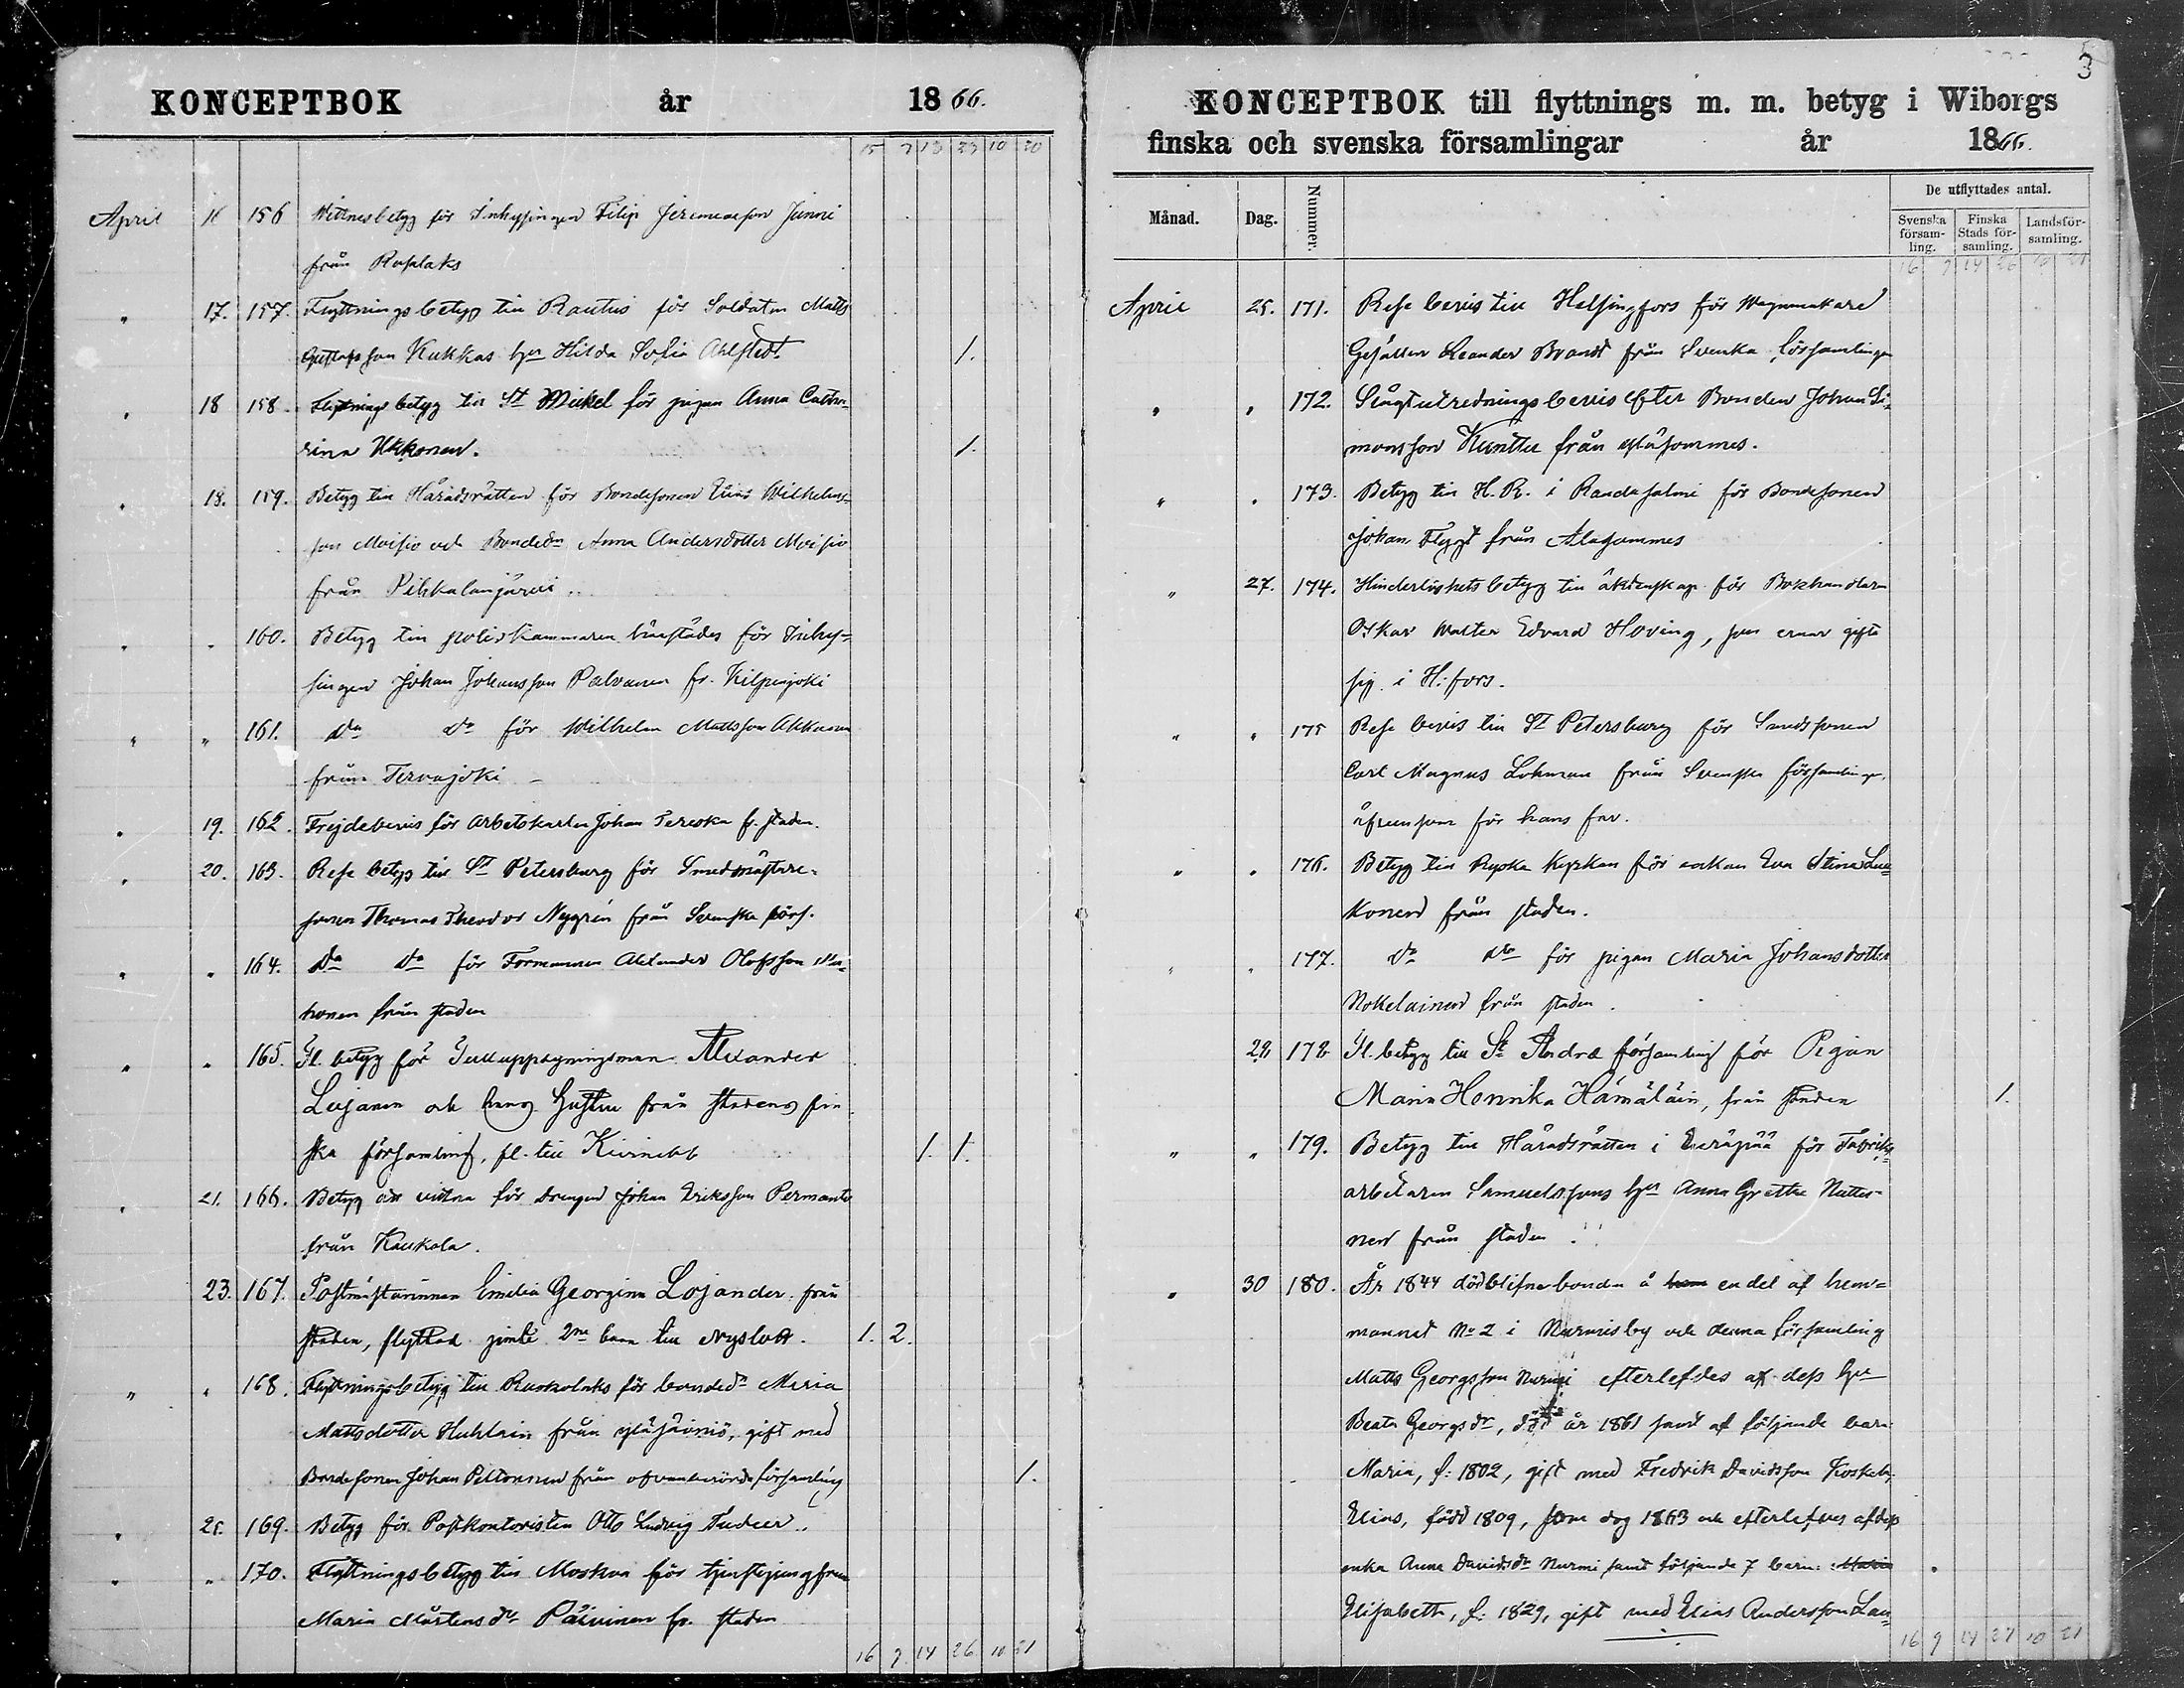 KONCEPTBOK år 1866.
15 7 13 23 10 20
April 16 156 Wittnesbetyg för Inhysingen Filip Jeremiasson Junni
från Ruplaks
" 17. 157. Flyttningsbetyg till Rautus för Soldaten Matts
Gustafsson Kukkas hu Hilda Sofia Ahlstedt 1.
" 18 158. Flyttnings betyg till St Mickel för pigan Anna Catha-
rina Ukkonen. 1.
" 18. 159. Betyg till Häradsrätten för Bondesonen Elias Wilhelms-
son Moisio och Bondedr Anna Andersdotter Moisio
från Pihkalanjärvi
" " 160. Betyg till poliskammaren härstädes för Inhy-
singen Johan Johansson Palvanen fr. Kilpenjoki
" " 161. do do för Wilhelm Mattsson Akkanen
från Tervajoki
" 19. 162. Frejdebevis för arbetskarlen Johan Tereska fr. staden.
" 20. 163. Rese betyg till St Petersburg för Smedmästare-
sonen Thomas Theodor Nygrén från Svenska förs.
" " 164. do do för Formannen Alexander Olofsson
honen från staden
" " 165. Fl. betyg för Tulluppsyningsman Alexander
Leijanen och hans Hustru från stadens fin
ska församling, fl. till Kivinebb 1. 1.
" 21. 166. Betyg att vittna för Drengen Johan Eriksson Permanto
från Kaukola.
23. 167. Postmästarinnan Emilia Georgina Lojander från
staden, flyttad jemte 2ne barn till Nyslott. 1. 2.
" " 168. Flyttningsbetyg till Ruokolaks för bondedr Maria
Mattsdotter Huhtain från Yläsäiniö, gift med
Bondesonen Johan Peltonen från ofvanberörde församling 1.
" 25. 169. Betyg för Postkontoristen Otto Ludvig Tudeer.
" " 170. Flyttningsbetyg till Moskva för tjenstejungfrun
Maria Mårtensdr Päivinen fr. staden
16 9 14 26 10 21
3
KONCEPTBOK till flyttnings m. m. betyg i Wiborgs
finska och svenska församlingar år 1866.
Månad. Dag. Nummer. De utflyttades antal.
Svenska församling. Finska Stads församling. Landsförsamling.
16 9 14 26 10 21
April 25. 171. Rese bevis till Helsingfors för Wagnmakare
Gesällen Leander Brandt från Svenska församlingen
" " 172. Slägtutredningsbevis efter Bonden Johan Si-
monsson Kunttu från Yläsommes.
" " 173. Betyg till H. R. i Randasalmi för Bondesonen
Johan Flygt från Alasommes
" 27. 174. Hinderlöshetsbetyg till äktenskap för Bokhandlaren
Oskar Walter Edvard Hoving, som ernar gifta
sig i H:fors.
" " 175 Rese bevis till St Petersburg för Smedssonen
Carl Magnus Lohman från Svenska församlingen,
äfvensom för hans far.
" " 176. Betyg till Ryska Kyrkan för enkan Eva Stina Luu-
konen från staden.
" " 177. do do för pigan Maria Johansdotter
Nokelainen från staden.
28 178 Fl. betyg till St Andræ församling för Pigan
Maria Hennika Hämäläin, från staden 1.
" " 179. Betyg till Häradsrätten i Euräpää för Fabriks-
arbetaren Samuelssons hu Anna Gretha Nutti-
nen från staden
" 30 180. År 1844 dödblifne bonden å hem en del af hem-
mannet No 2 i Nurmisby och denna församling
Matts Georgsson Nurmi efterlefdes af dess hu
Beata Georgsdr, död år 1861 samt af följande barn:
Maria, f: 1802, gift med Fredrik Davidsson Koskela,
Elias, född 1809, som dog 1863 och efterlefves af dess
enka Anna Davidsdr Nurmi samt följande 7 barn: Maria
Elisabeth, f: 1829, gift med Elias Andersson Lau-
16 9 14 27 10 21